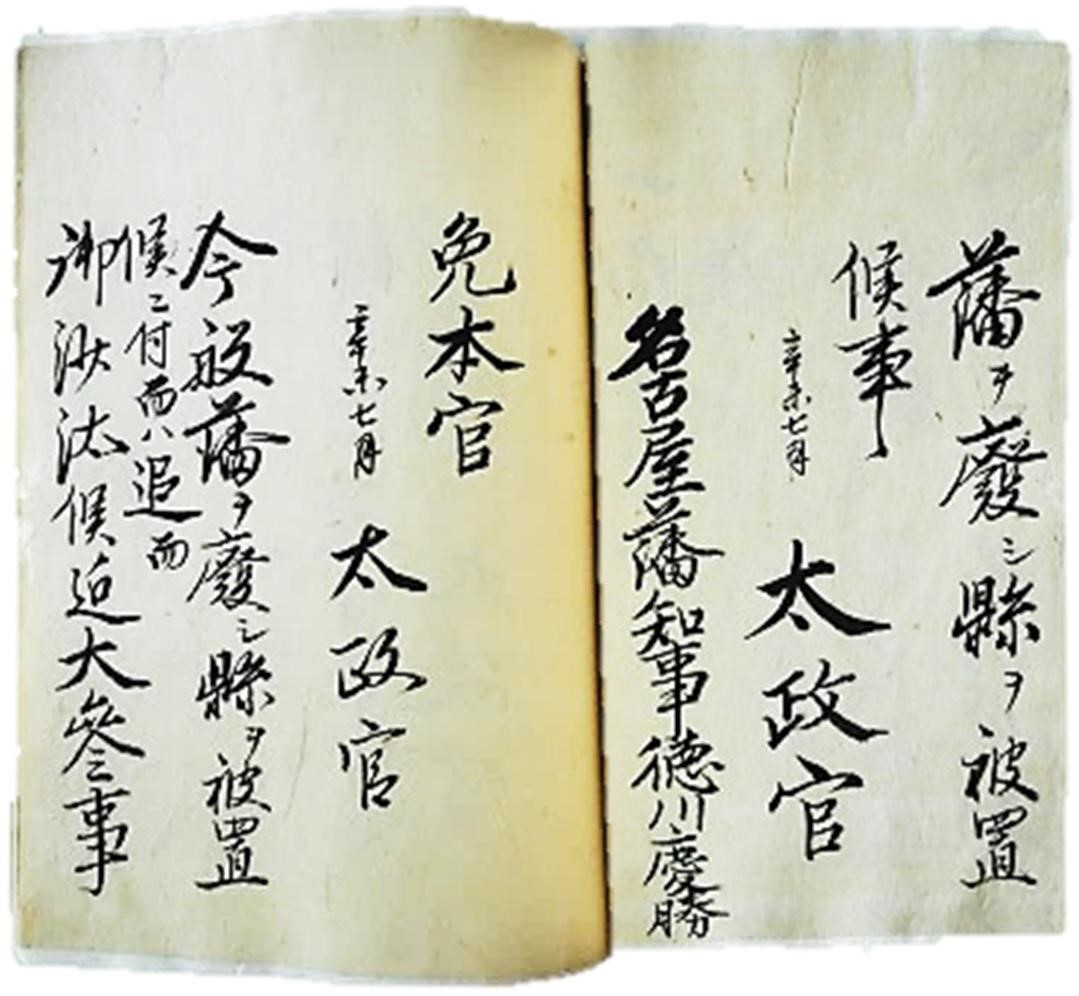 藩ヲ廢シ縣ヲ被置
候事
辛未七月
太政官
名古屋藩知事徳川慶勝
免本官
辛未七月
太政官
今般藩ヲ廢シ縣ヲ被置
候ニ付而ハ追而
御沙汰候迠大參事